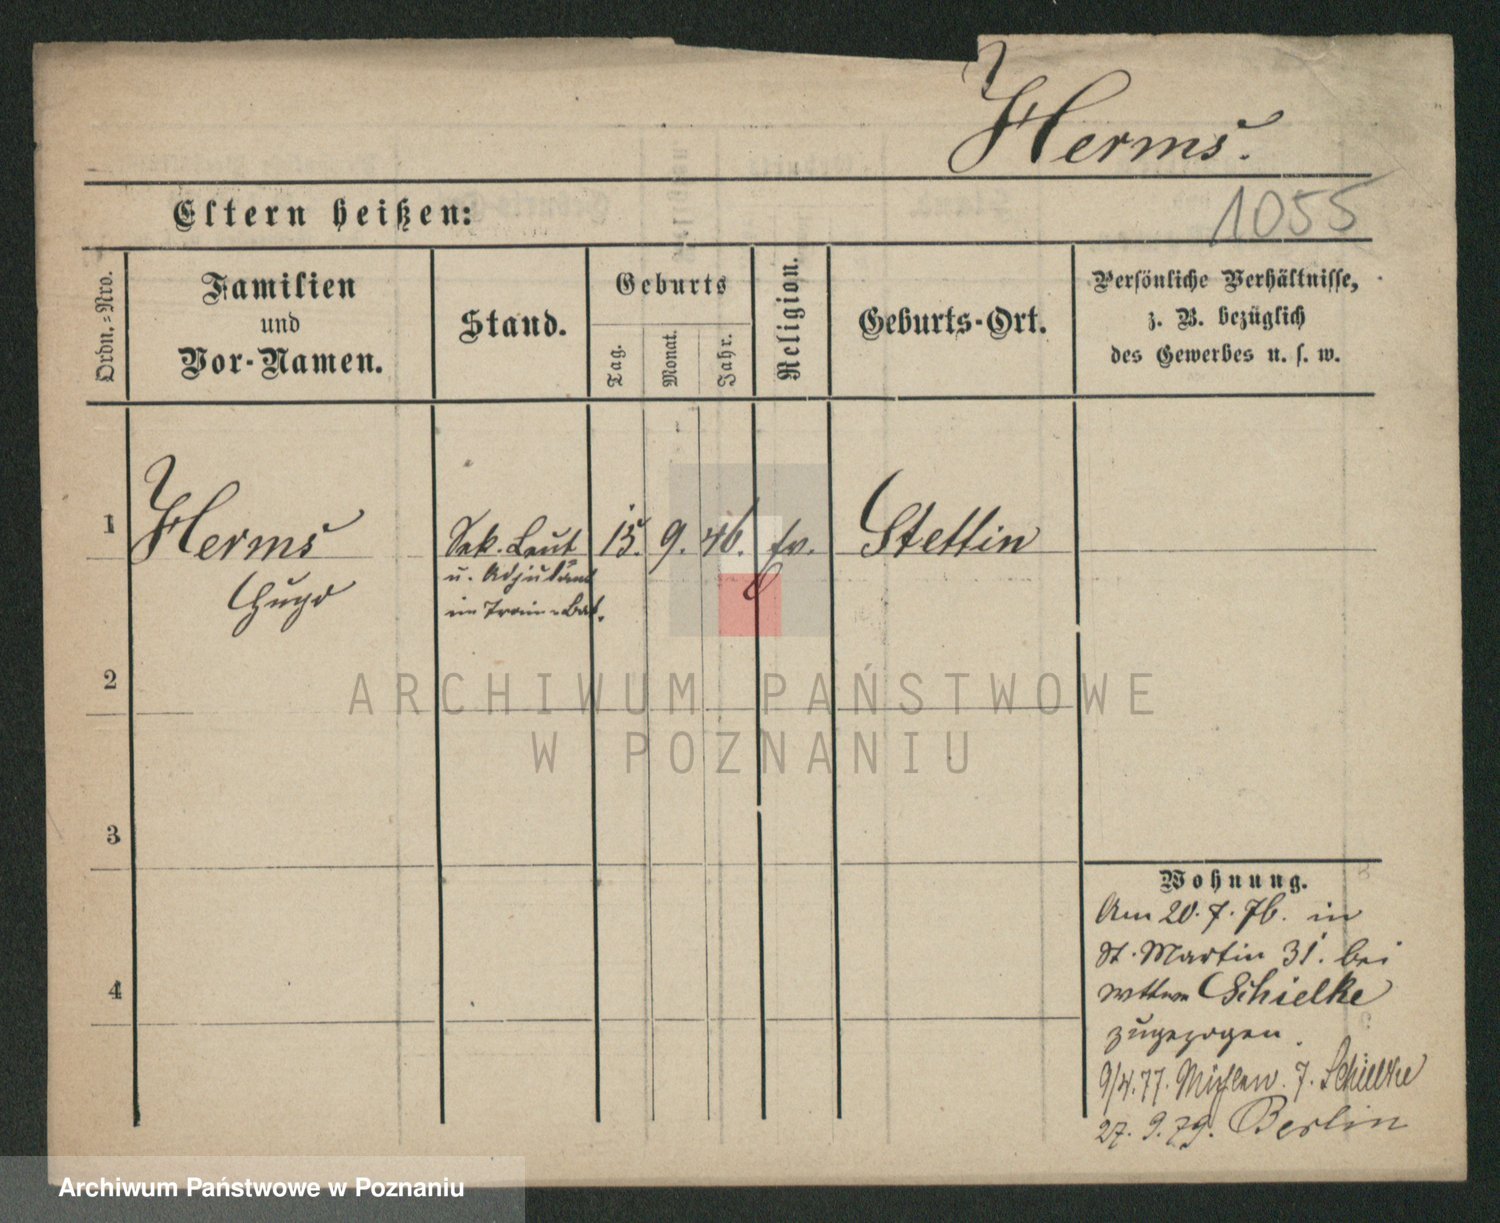 Herms.
1055
Eltern heißen:
Ordn.-Nro.
Familien
und
Vor-Namen.
Stand.
Geburts
Tag.
Monat.
Jahr.
Religion.
Geburts-Ort.
Persönliche Verhältnisse,
z. B. bezüglich
des Gewerbes u. s. w.
1
Herms
Hugo
Sek. Leut
u. Adjutant
im Train-Bat.
15.
9.
46.
ev.
Stettin
2
3
4
Wohnung.
Am 20.7.76. in
St. Martin 31. bei
Wittwe Schielke
zugezogen.
9/4.77. Mühlen. 7. Schielke
27.9.79. Berlin
ARCHIWUM PAŃSTWOWE
W POZNANIU
Archiwum Państwowe w Poznaniu